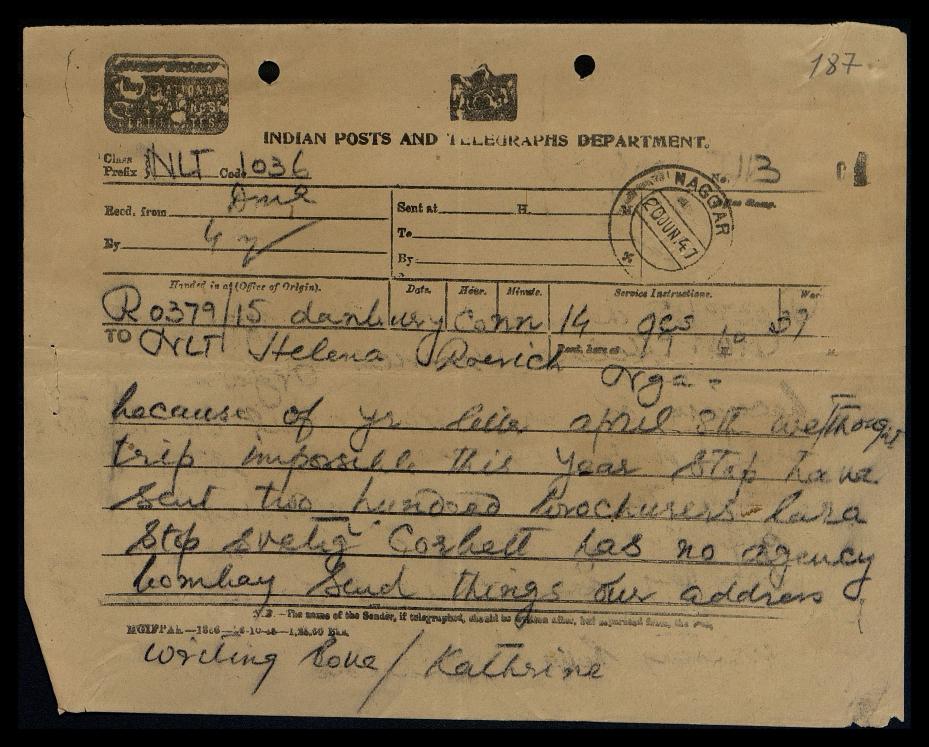 187
NATIONAL
INDIAN POSTS AND TELEGRAPHS DEPARTMENT.
Class
Prefix NLT Code 1036
No. 113
Recd. from
By
Sent at H.
To
By
NAGGAR
20 JUN. 47
Handed in at (Office of Origin). Date. Hour. Minute. Service Instructions.
R 0379/15 danbury Conn 14 37
TO NLT Helena Roerich
Nga =
because of yr letter april 8th we/thought
trip impossible this year Stop have
Sent two hundred brochurers lara
Stop svetig Corbett has no agency
bombay Send things our address
N.B.—The name of the Sender, if telegraphed, should be written after, but separated from, the
writing Love/ Kathrine